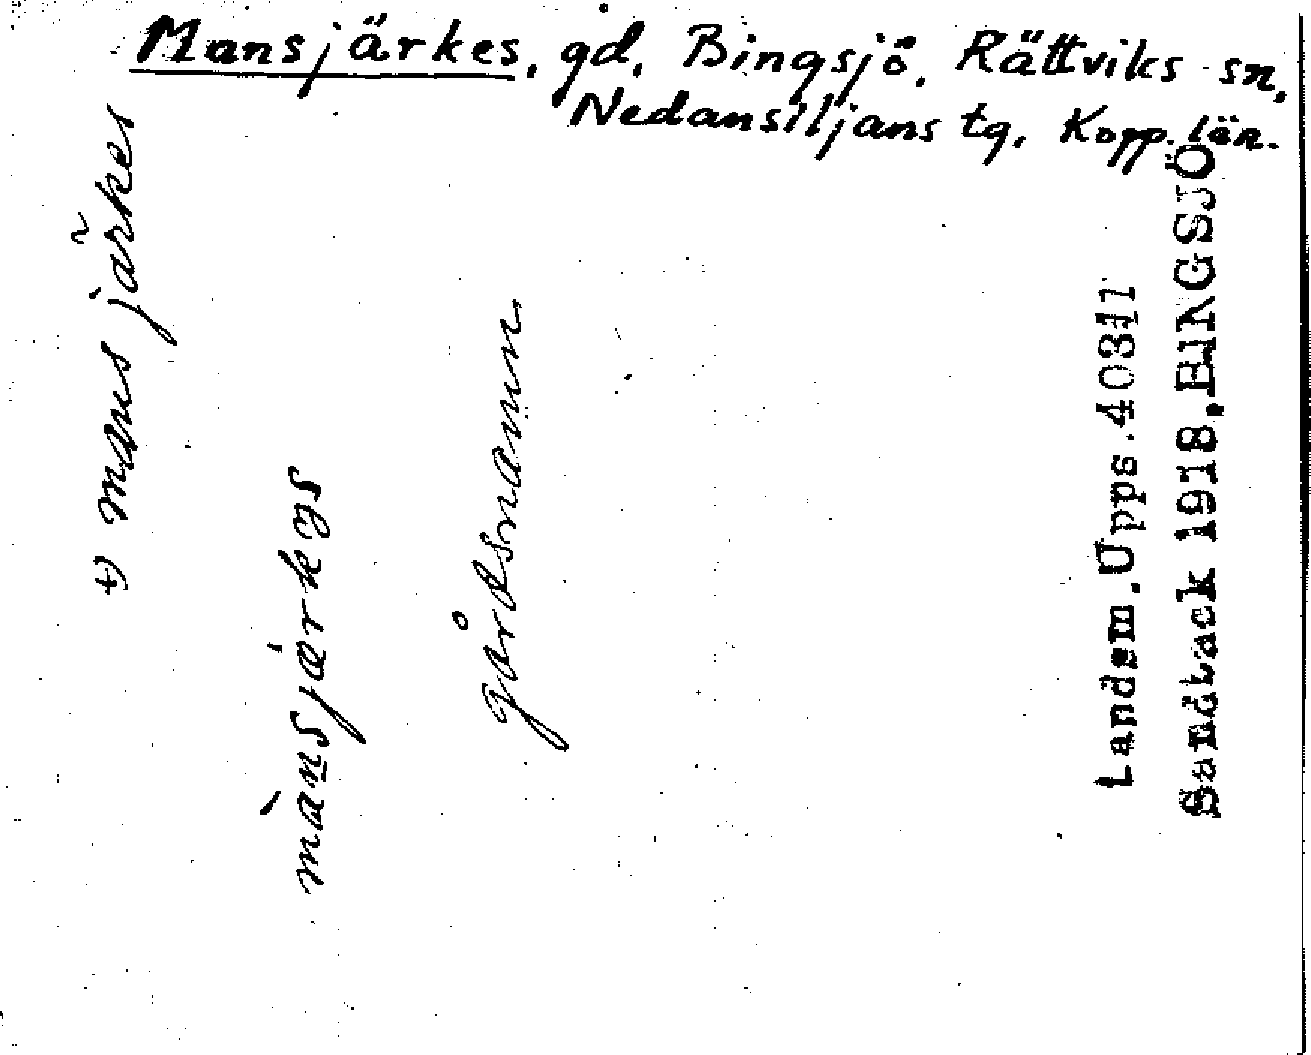 Mansjärkes, gd, Bingsjö, Rättviks sn,
Nedansiljans tg, Kopp. län.
mans järkes
gårdsnamn
Landsm. Upps. 40311
Sandback 1918. BINGSJÖ